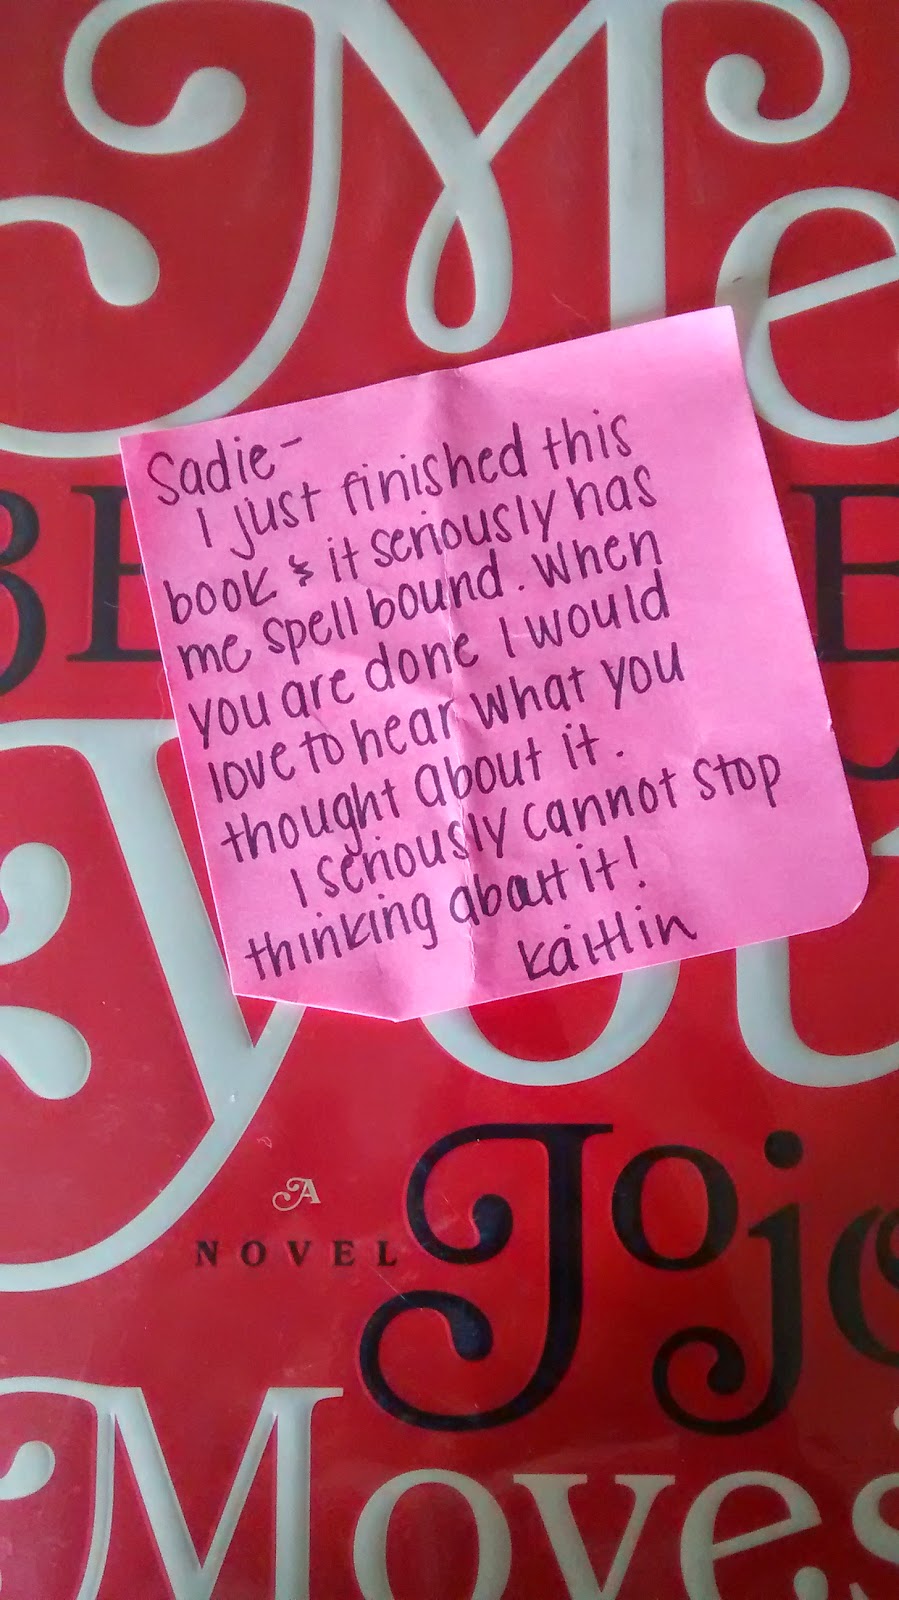 Me
Sadie-
I just finished this
book & it seriously has
me spell bound. When
you are done I would
love to hear what you
thought about it.
I seriously cannot stop
thinking about it!
Kaitlin
A
NOVEL
Jojo
Moyes